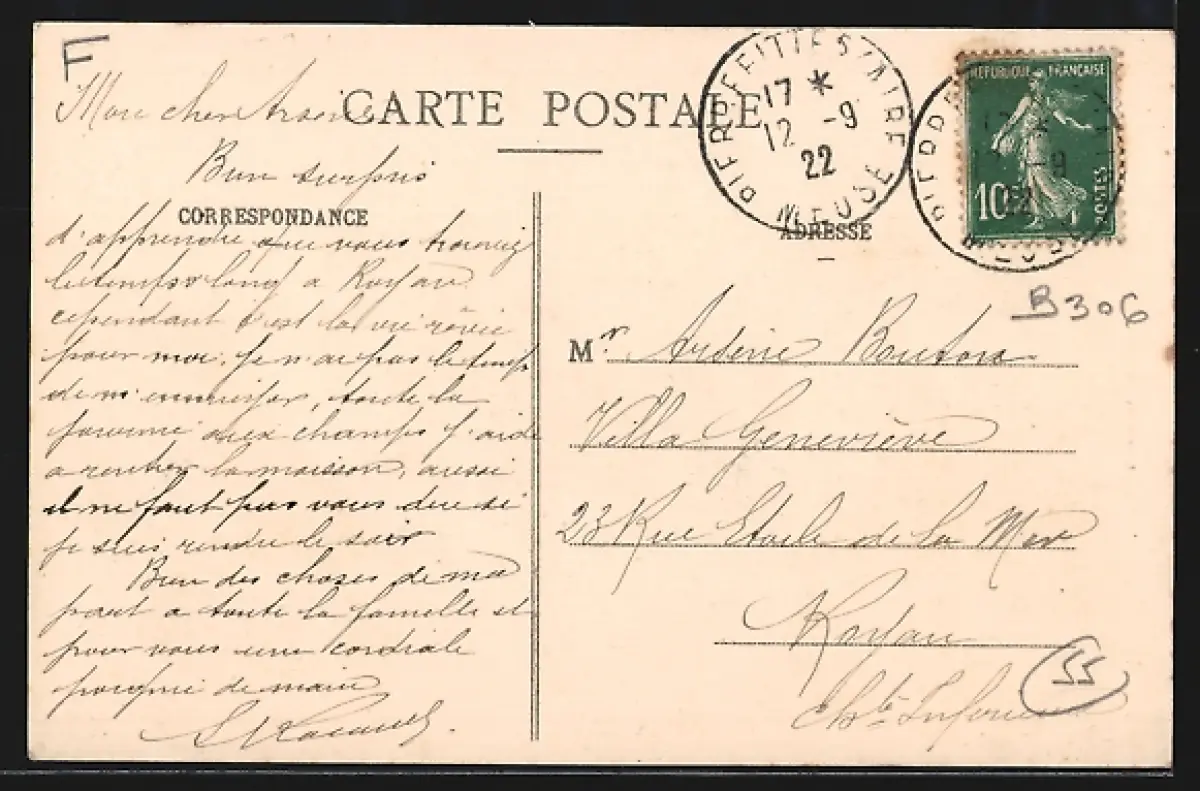 F
Mon cher Arsène
CARTE POSTALE
Bien surpris
CORRESPONDANCE
d'apprendre que vous trouviez
le temps long a Royan
cependant c'est la vie rêvée
pour moi. Je n'ai pas le temps
de m'ennuyer, toute la
journée aux champs j'aide
a rentrer la moisson, aussi
il ne faut pas vous dire si
je suis rendu le soir
Bien des choses de ma
part a toute la famille et
pour vous une cordiale
poignée de main
PIERREFITTE S/ AIRE
17 *
12 -9
22
MEUSE
REPUBLIQUE FRANÇAISE
10
POSTES
17 *
12 -9
22
ADRESSE
B306
Mr. Arsène Boutons
Villa Geneviève
23 Rue Etoile de la Mer
Royan
Chte Inférieure
55